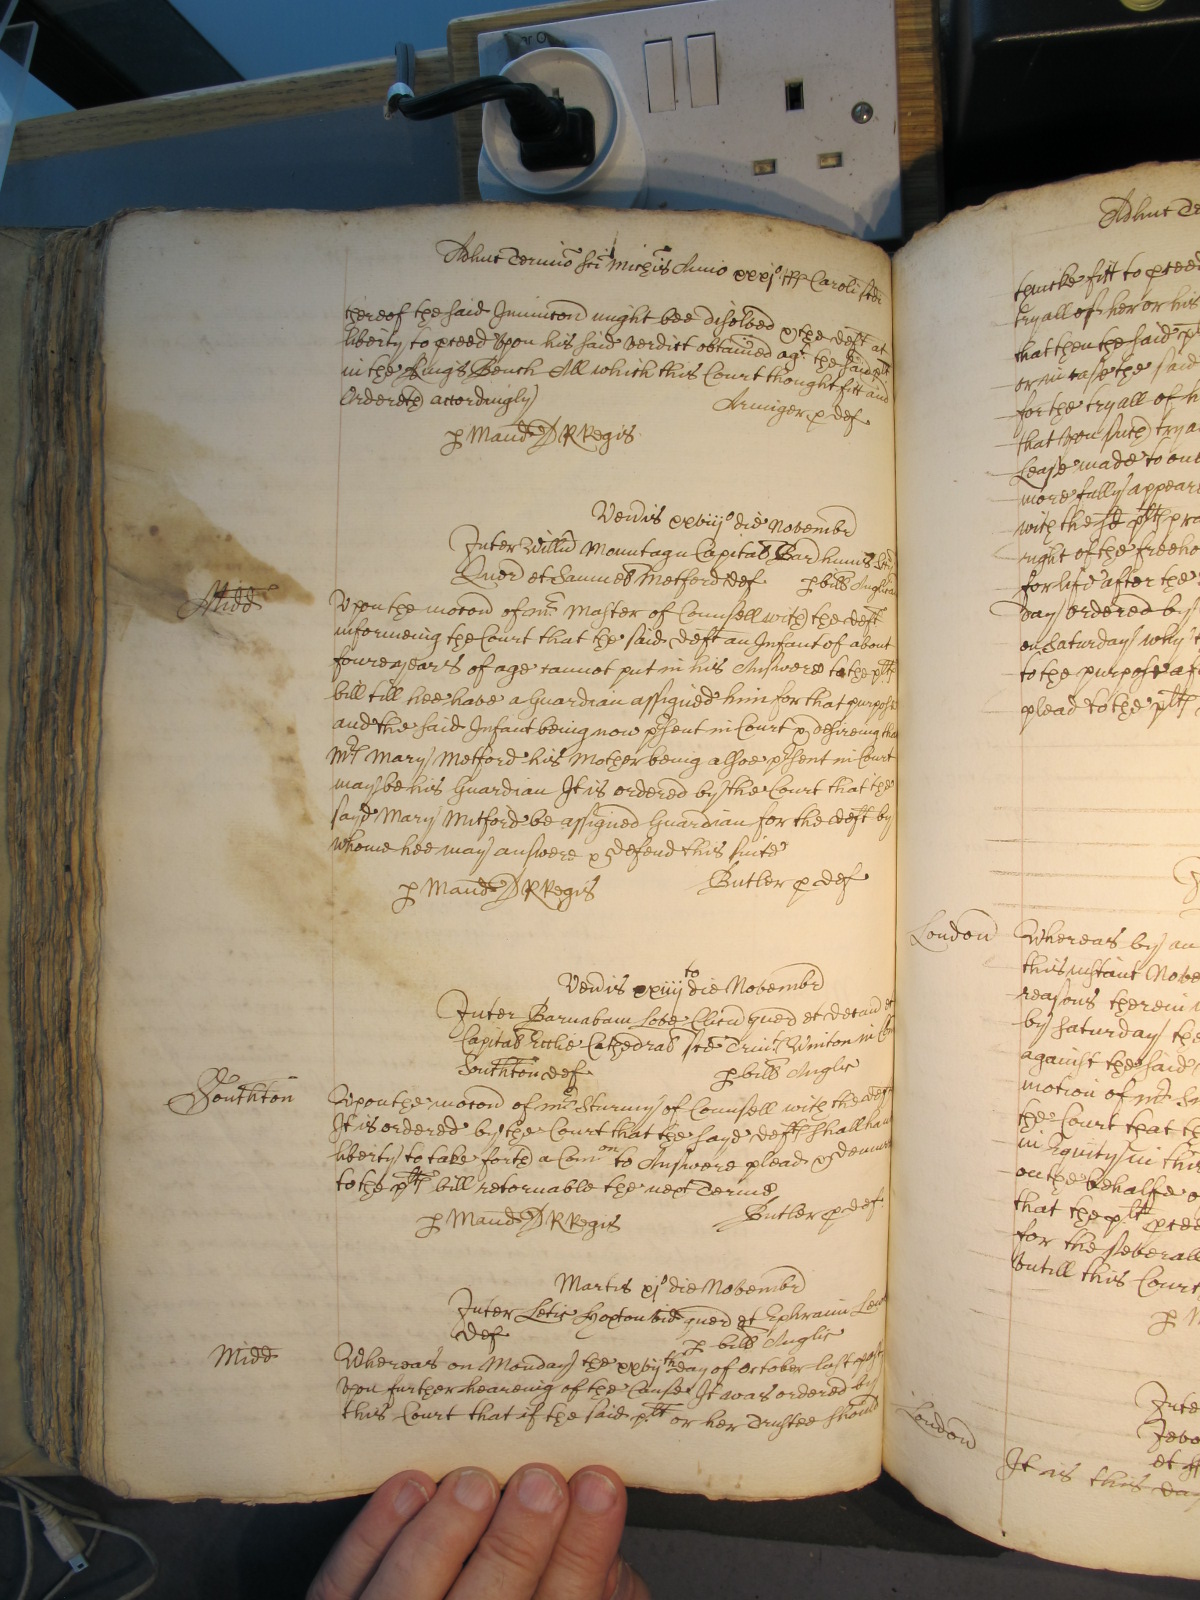 Adhuc Termino sci Michis Anno xxxj° RRs Caroli scdi
thereof the said Iniuncion might bee disolved & the deft at
liberty to pceed vpon his said verdict obtained agt the said plt
in the Kings Bench All which this Court thought fitt and
Ordereth accordingly
Armiger p def
p Mand D RRegis
Veneris xxviij° die Novembr
Inter Willm Mountagu Capital Bar huius
Quer et Samuel Metford def p bill Anglic
Midd
Vpon the mocon of mr Master of Counsell with the deft
informeing the Court that the said deft an Infant of about
foure years of age cannot put in his Answere to the plts
bill till hee have a Guardian assigned him for that purpose
and the said Infant being now psent in Court & desireing that
Mrs Mary Metford his Mother being alsoe psent in Court
may be his Guardian It is ordered by the Court that the
sayd Mary Mitford be assigned Guardian for the deft by
whome hee may answere & defend this suite
p Mand D RRegis
Butler p def
Veneris xxiiij to die Novembr
Inter Barnabam Love Clicu quer et Decan et
Capital Ecclie Cathedral sce Trint Winton in Com
Southton def p bill Anglic
Southton
Vpon the mocon of mr Sturmy of Counsell with the deft
It is ordered by the Court that the sayd defts shall have
liberty to take forth a Comon to Answere plead & demurr
to the plts bill retornable the next Terme
p Mand D RRegis
Butler p def
Martis xj° die Novembr
Inter Letic Hoxton vid quer et Ephraim
def p bill Anglic
Midd
Whereas on Monday the xxvijth day of October last past
vpon further heareing of the Cause It was ordered by
this Court that if the said plt or her Trustee should
Adhuc Te
thincke fitt to pceed
tryall of her or his
that then the said
or in case the said
for the tryall of h
that vpon such trya
Lease made to out
more fully appeare
with the sd plts
right of the freeho
for life after the
day ordered by
on Saturday why
to the purpose af
plead to the plts
London
Whereas by an
this instant Nove
reasons therein
by Saturday the
against the said
motion of mr
the Court that th
in Equity in this
on the behalfe o
that the plt pcee
for the severall
vntill this Court
p M
London
Inte
et
It is this day